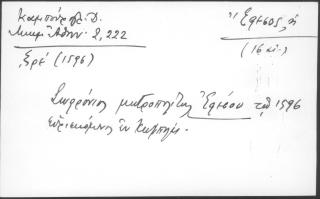 Καμπούρογλ. Δ.
Μνημ. Αθην. 2, 222
Ἔφεσος, ἡ
(16 αἰ.)
(1596)
Σωφρόνιος μητροπολίτης Ἐφέσου τῷ 1596
εὑρισκόμενος ἐν